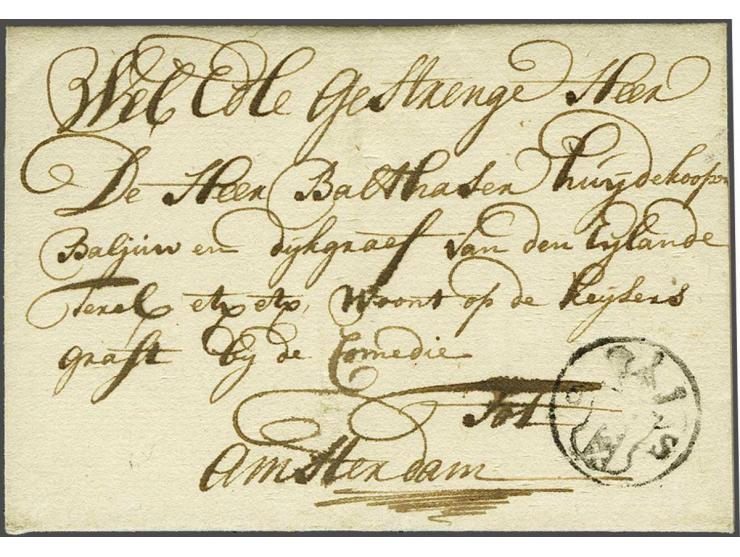 Wel Edle Gestrenge Heer
De Heer Balthaser huijdekooper
Baljuw en dijkgraef van den Eylande
Texel etx etx, Woont op de keysers
graft bij de Comedie
Tot
Amsterdam